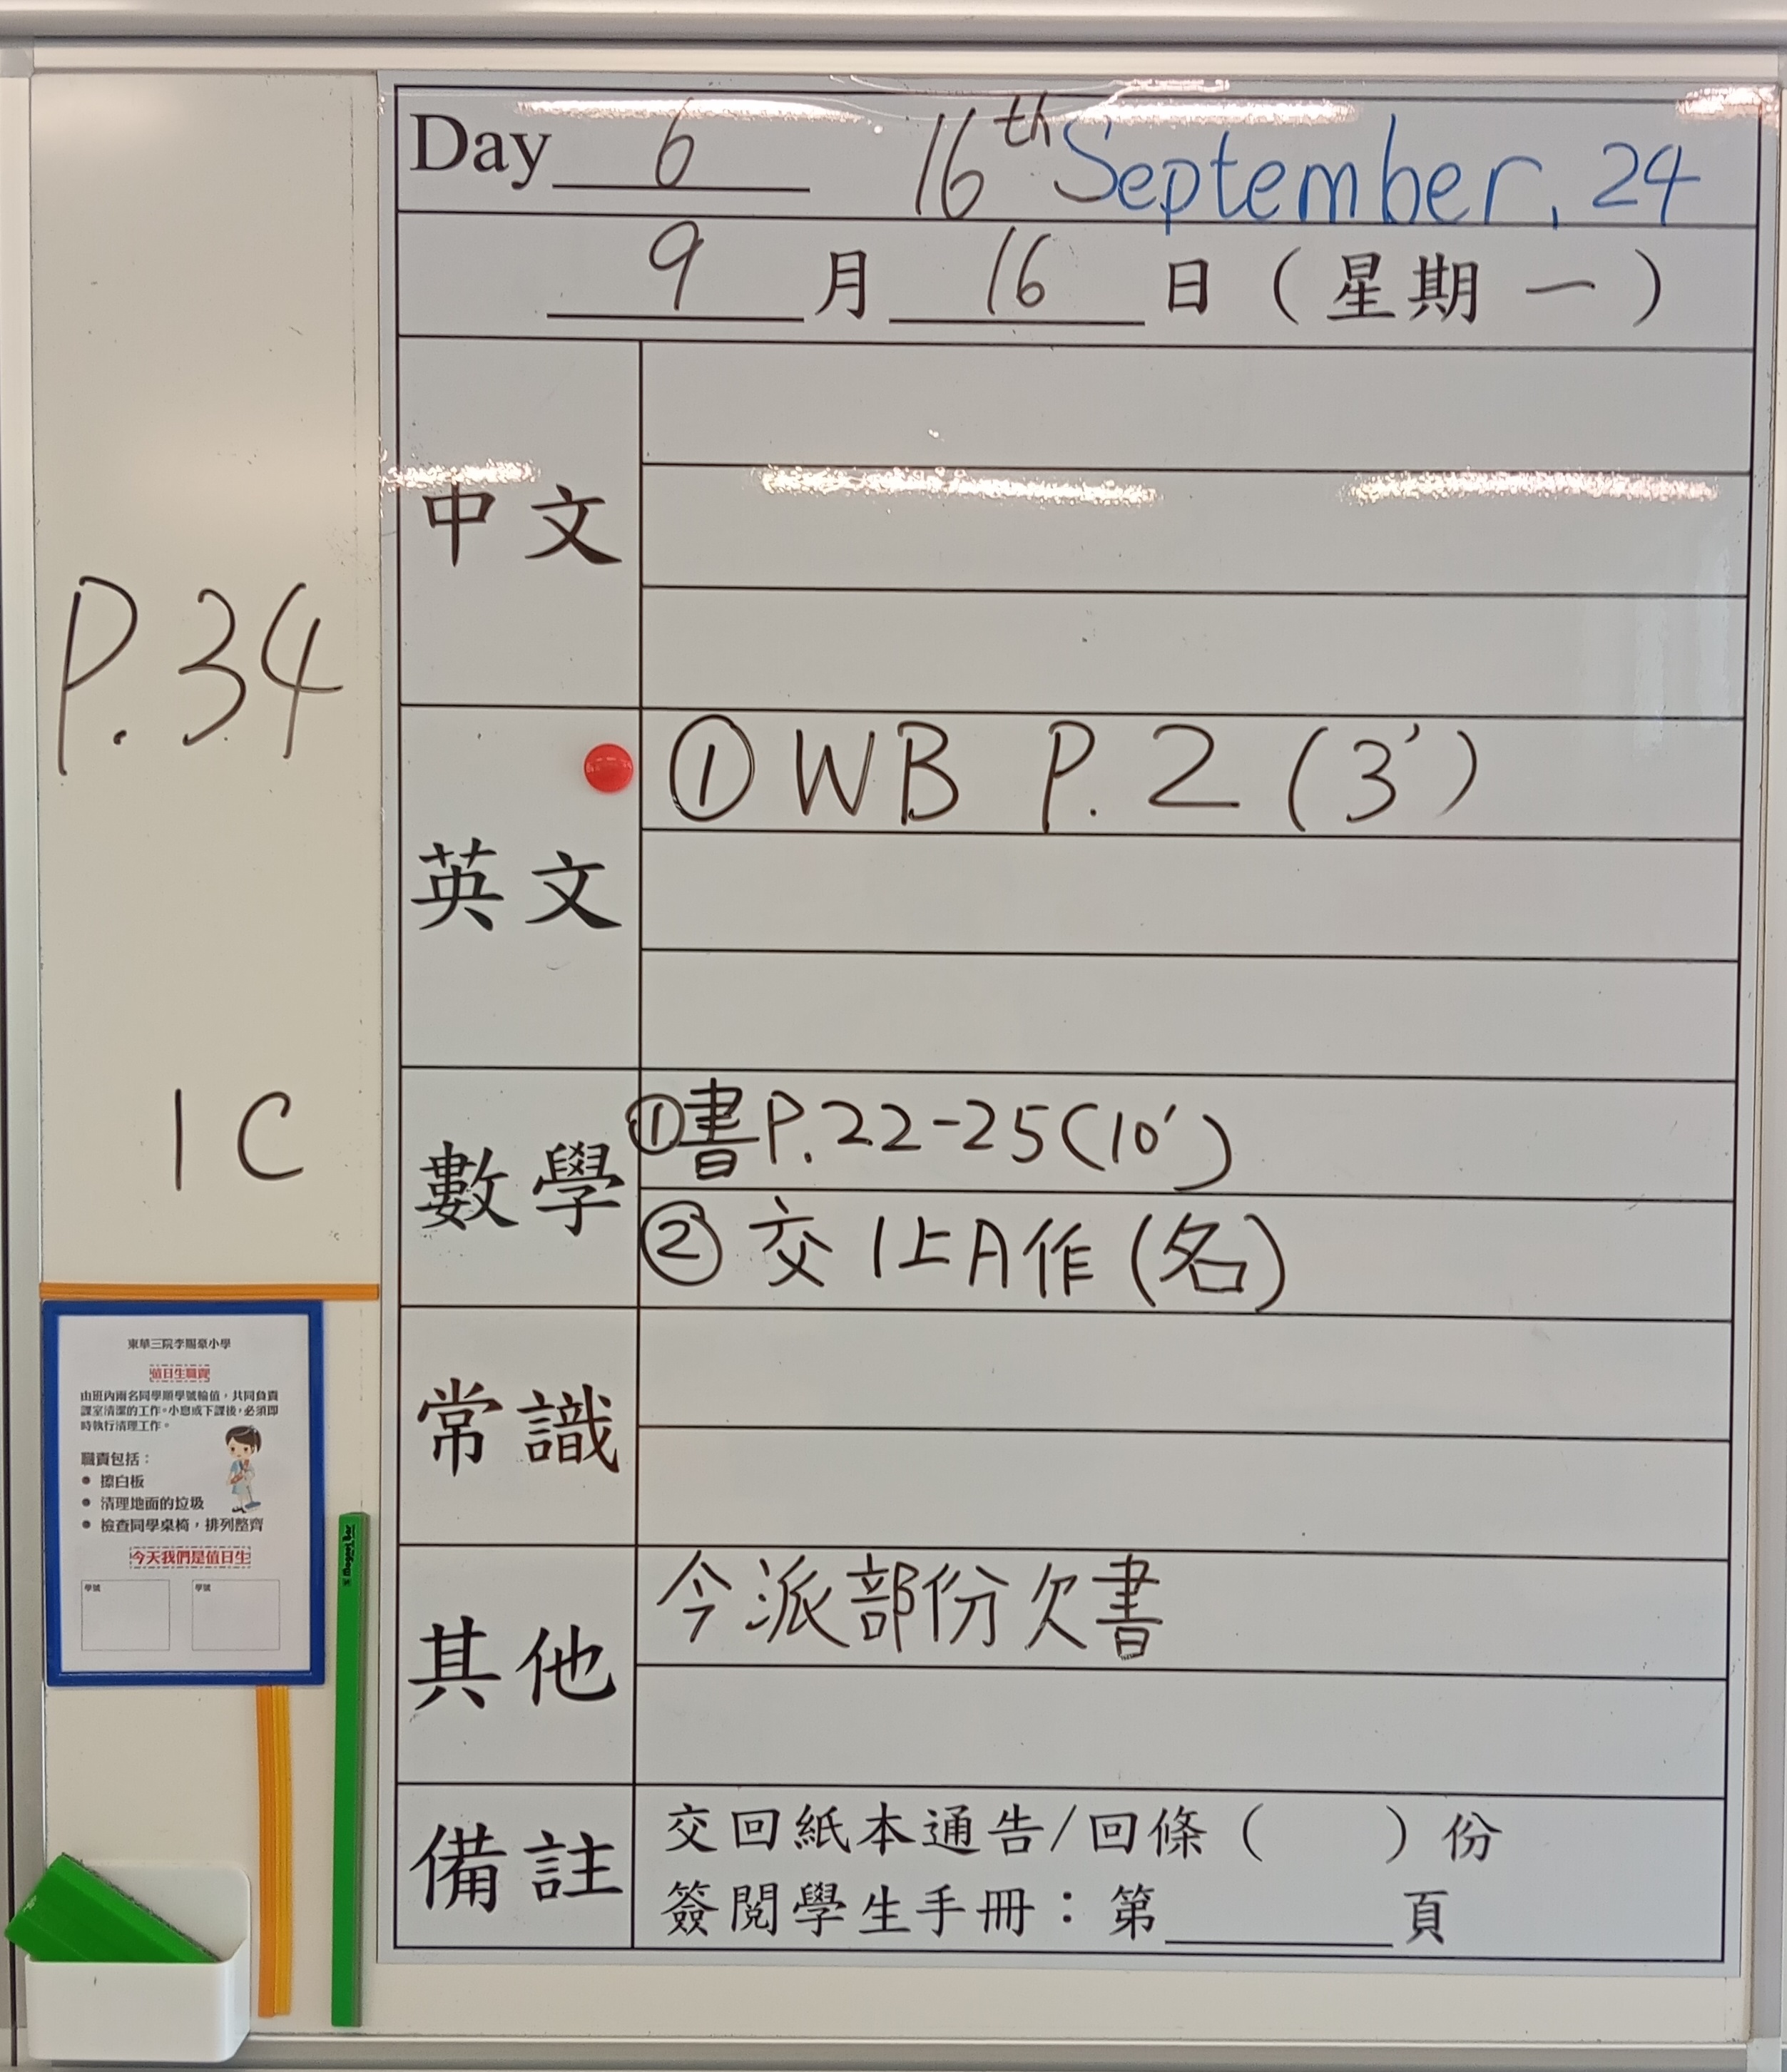 Day 6 16th September, 24
9月16日（星期一）
中文
P.34
英文
① WB P.2 (3')
1C
數學
①書P.22-25(10')
② 交1上A作(名)
常識
其他
今派部份欠書
備註
交回紙本通告/回條（ ）份
簽閱學生手冊：第______頁
東華三院李賜豪小學
值日生職責
由班內兩名同學順學號輪值，共同負責
課室清潔的工作。小息或下課後，必須即
時執行清理工作。
職責包括：
● 擦白板
● 清理地面的垃圾
● 檢查同學桌椅，排列整齊
今天我們是值日生
學號 學號